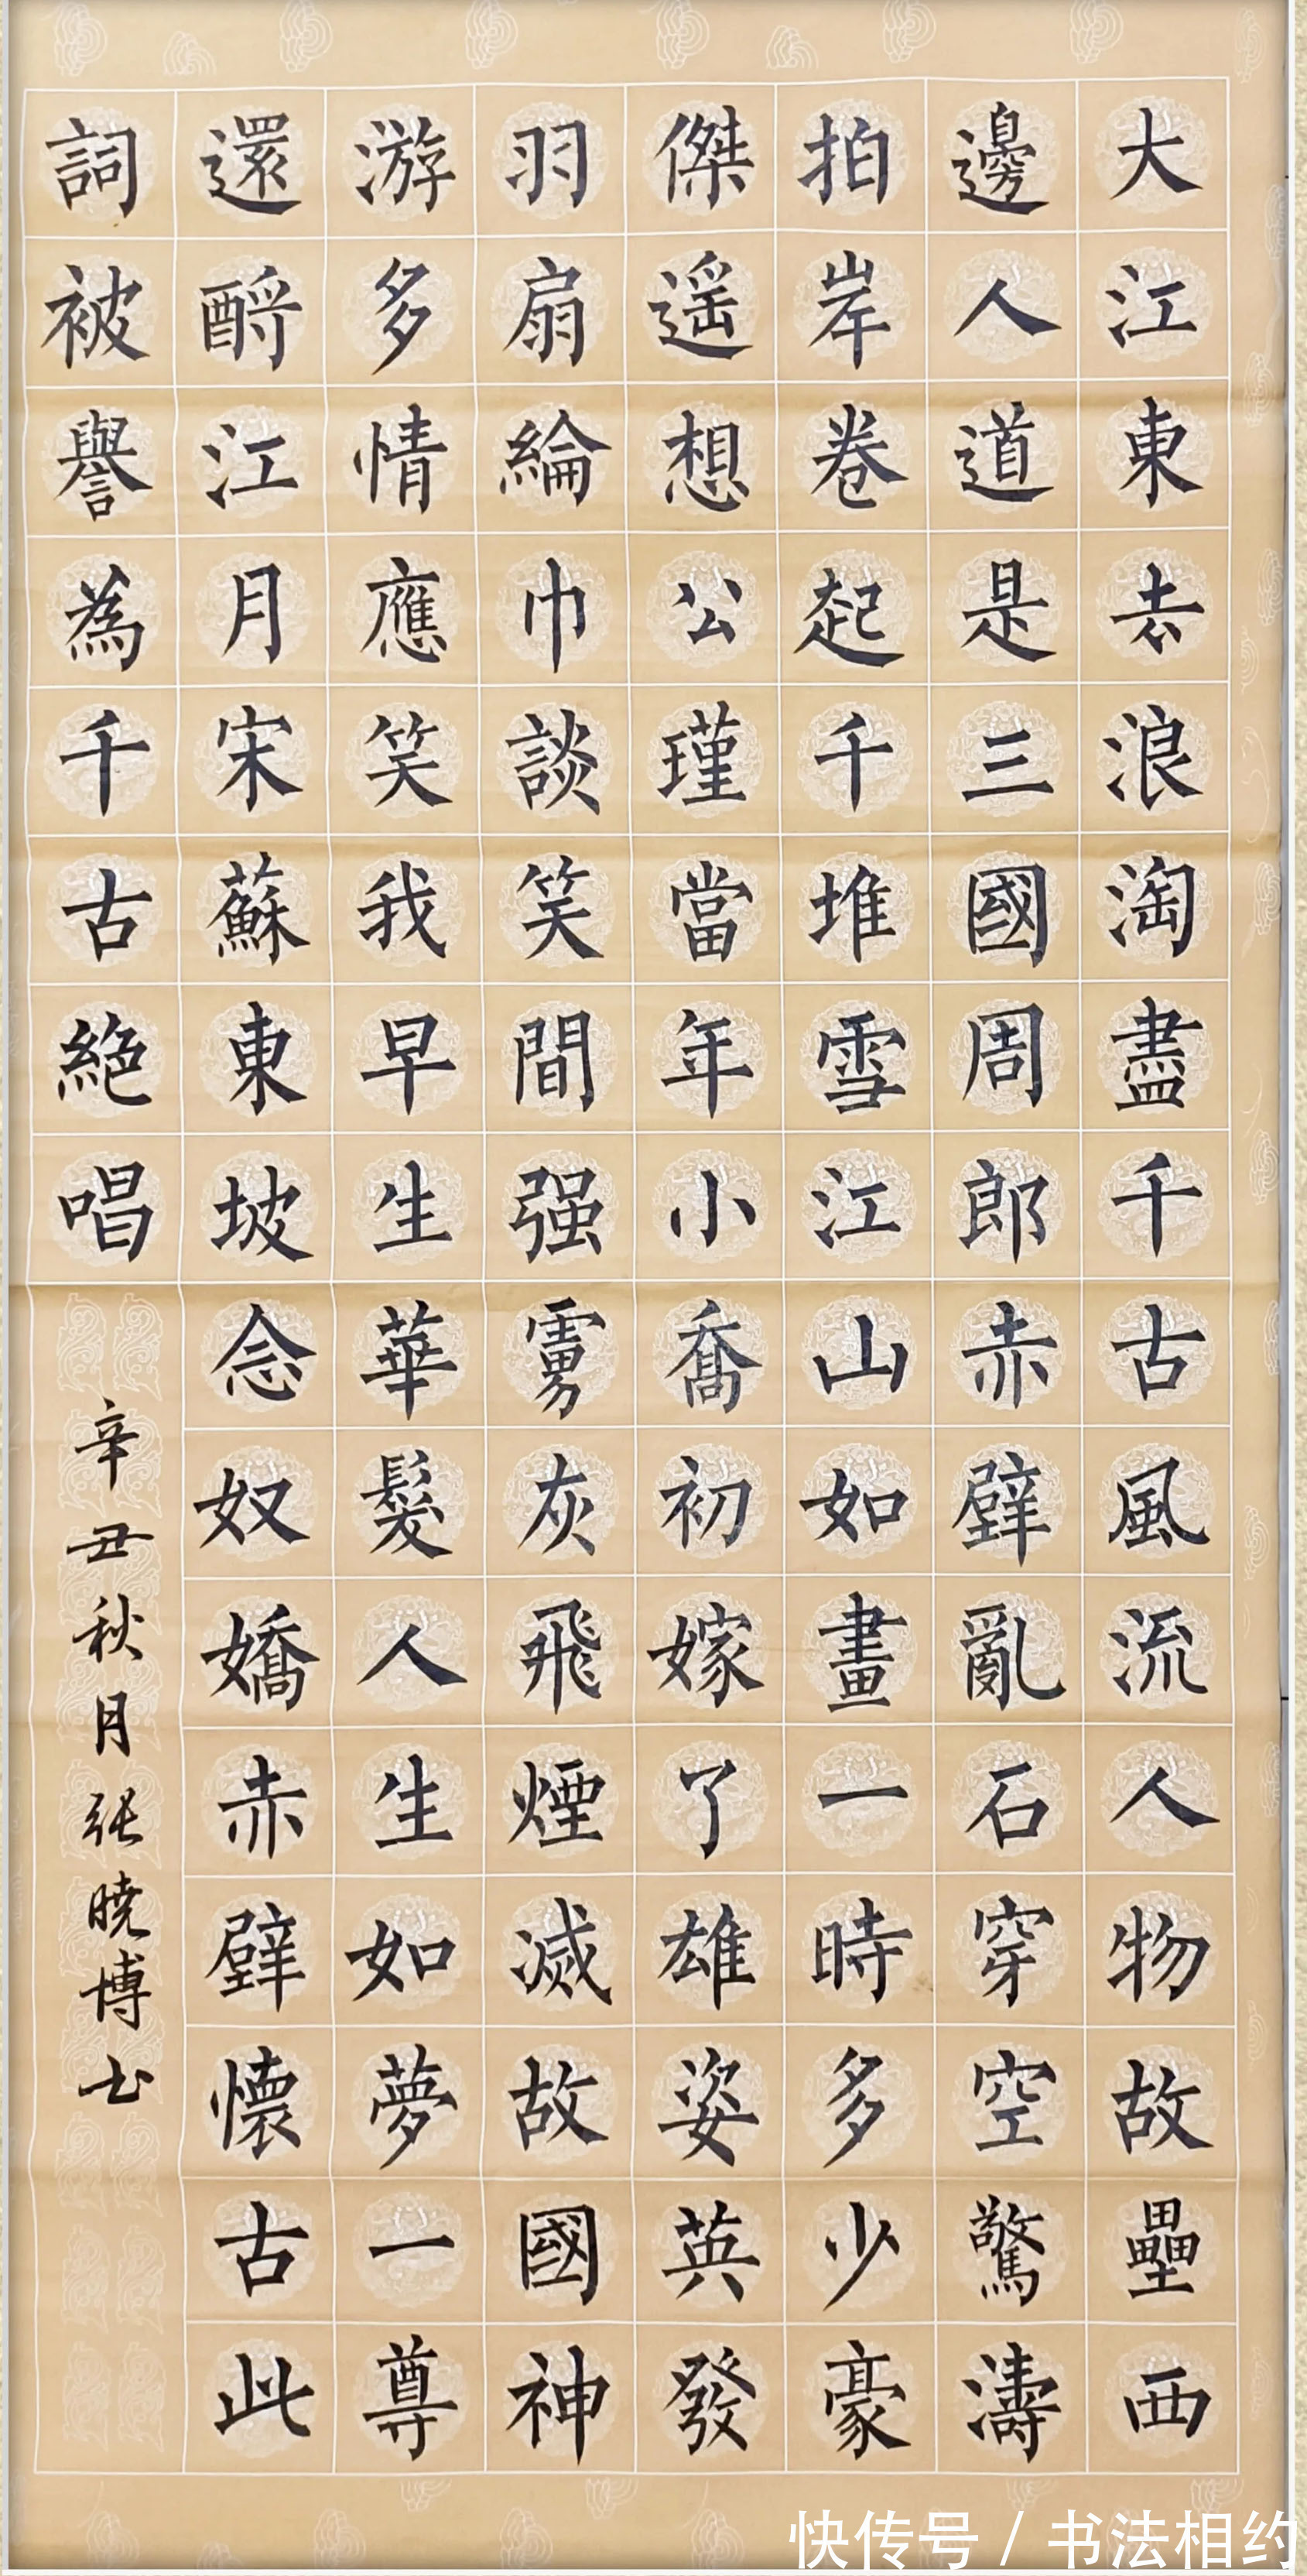 大江東去浪淘盡千古風流人物故壘西
邊人道是三國周郎赤壁亂石穿空驚濤
拍岸卷起千堆雪江山如畫一時多少豪
傑遥想公瑾當年小喬初嫁了雄姿英發
羽扇綸巾談笑間强虜灰飛煙滅故國神
游多情應笑我早生華髮人生如夢一尊
還酹江月宋蘇東坡念奴嬌赤壁懷古此
詞被譽為千古絶唱
辛丑秋月张曉博书
快传号 / 书法相约